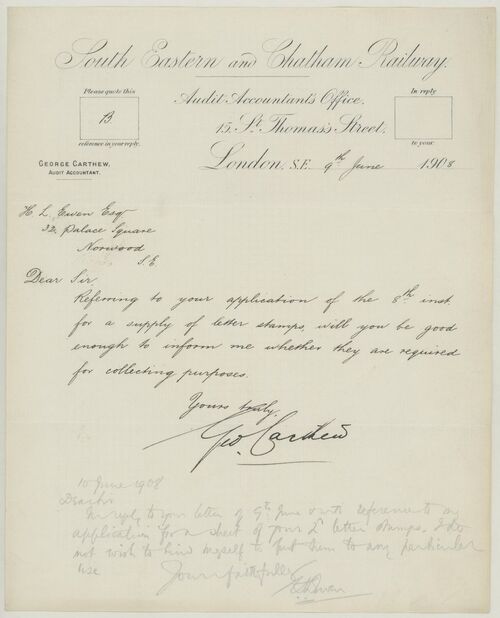 South Eastern and Chatham Railway.
Please quote this
B
reference in your reply.
In reply
to your
Audit Accountant's Office,
15, St. Thomas's Street,
London, S.E. 9th June 1908
GEORGE CARTHEW,
AUDIT ACCOUNTANT.
H. L. Ewen Esqr
32, Palace Square
Norwood
S.E
Dear Sir,
Referring to your application of the 8th inst.
for a supply of letter stamps, will you be good
enough to inform me whether they are required
for collecting purposes.
Yours truly,
Geo. Carthew
10 June 1908
Dear Sir
In reply to your letter of 9th June & with reference to my
application for a sheet of your 2d letter stamps, I do
not wish to bind myself to put them to any particular
use
Yours faithfully
H L Ewen